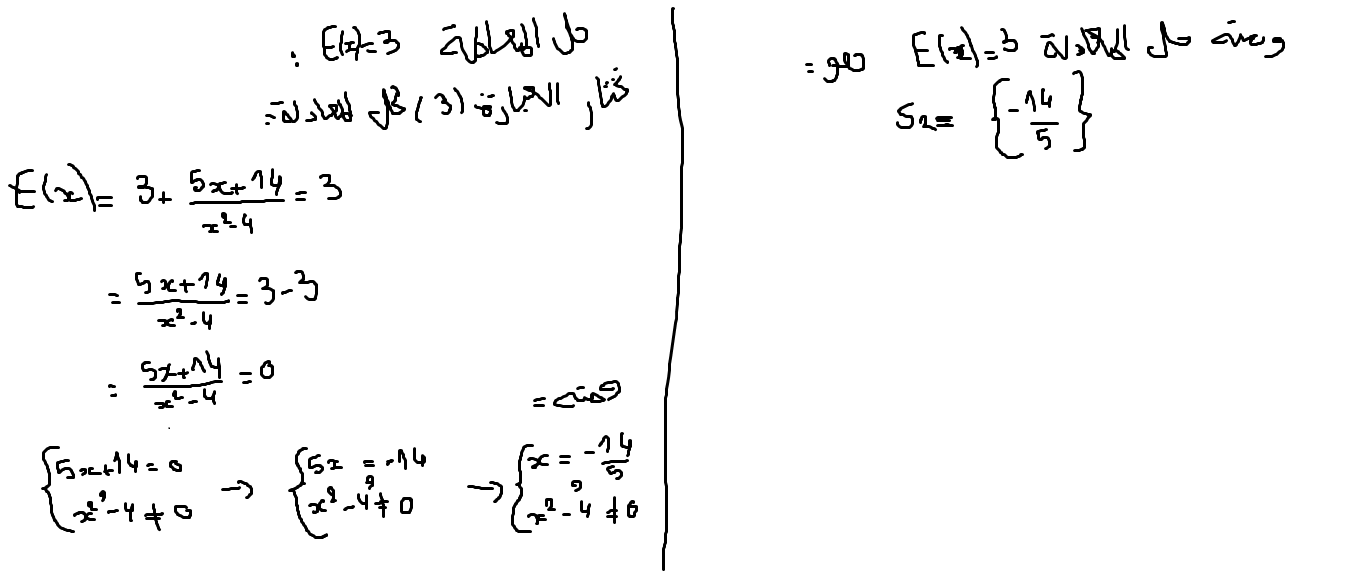 حل المعادلة E(x)=3 :
نختار العبارة (3) لحل المعادلة:
E(x) = 3 + \frac{5x+14}{x²-4} = 3
= \frac{5x+14}{x²-4} = 3-3
= \frac{5x+14}{x²-4} = 0
ومنه =
{5x+14=0 , x²-4≠0 → {5x=-14 , x²-4≠0 → {x=-\frac{14}{5} , x²-4≠0
ومنه حل المعادلة E(x)=3 هو =
S₂= {-\frac{14}{5}}